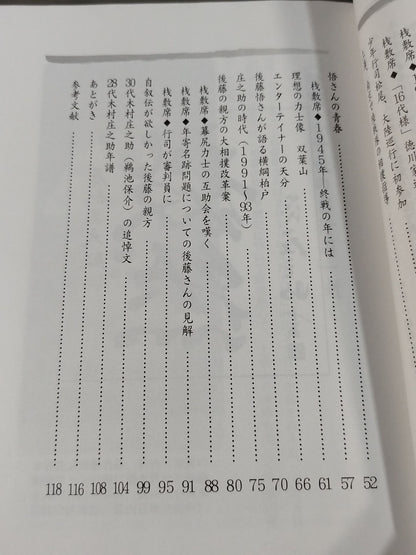 桟敷席◆
桟敷席◆「16代様」徳川家
少年行司松尾、大陸巡行に初参加
悟さんの青春 52
桟敷席◆1945年 終戦の年には 57
理想の力士像 双葉山 61
エンターテイナーの天分 66
後藤悟さんが語る横綱柏戸 70
庄之助の時代(1991〜93年) 75
後藤の親方の大相撲改革案 80
桟敷席◆幕尻力士の互助会を嘆く 88
桟敷席◆年寄名跡問題についての後藤さんの見解 91
桟敷席◆行司が審判員に 95
自叙伝が欲しかった後藤の親方 99
30代木村庄之助(鵜池保介)の追悼文 104
28代木村庄之助年譜 108
あとがき 116
参考文献 118